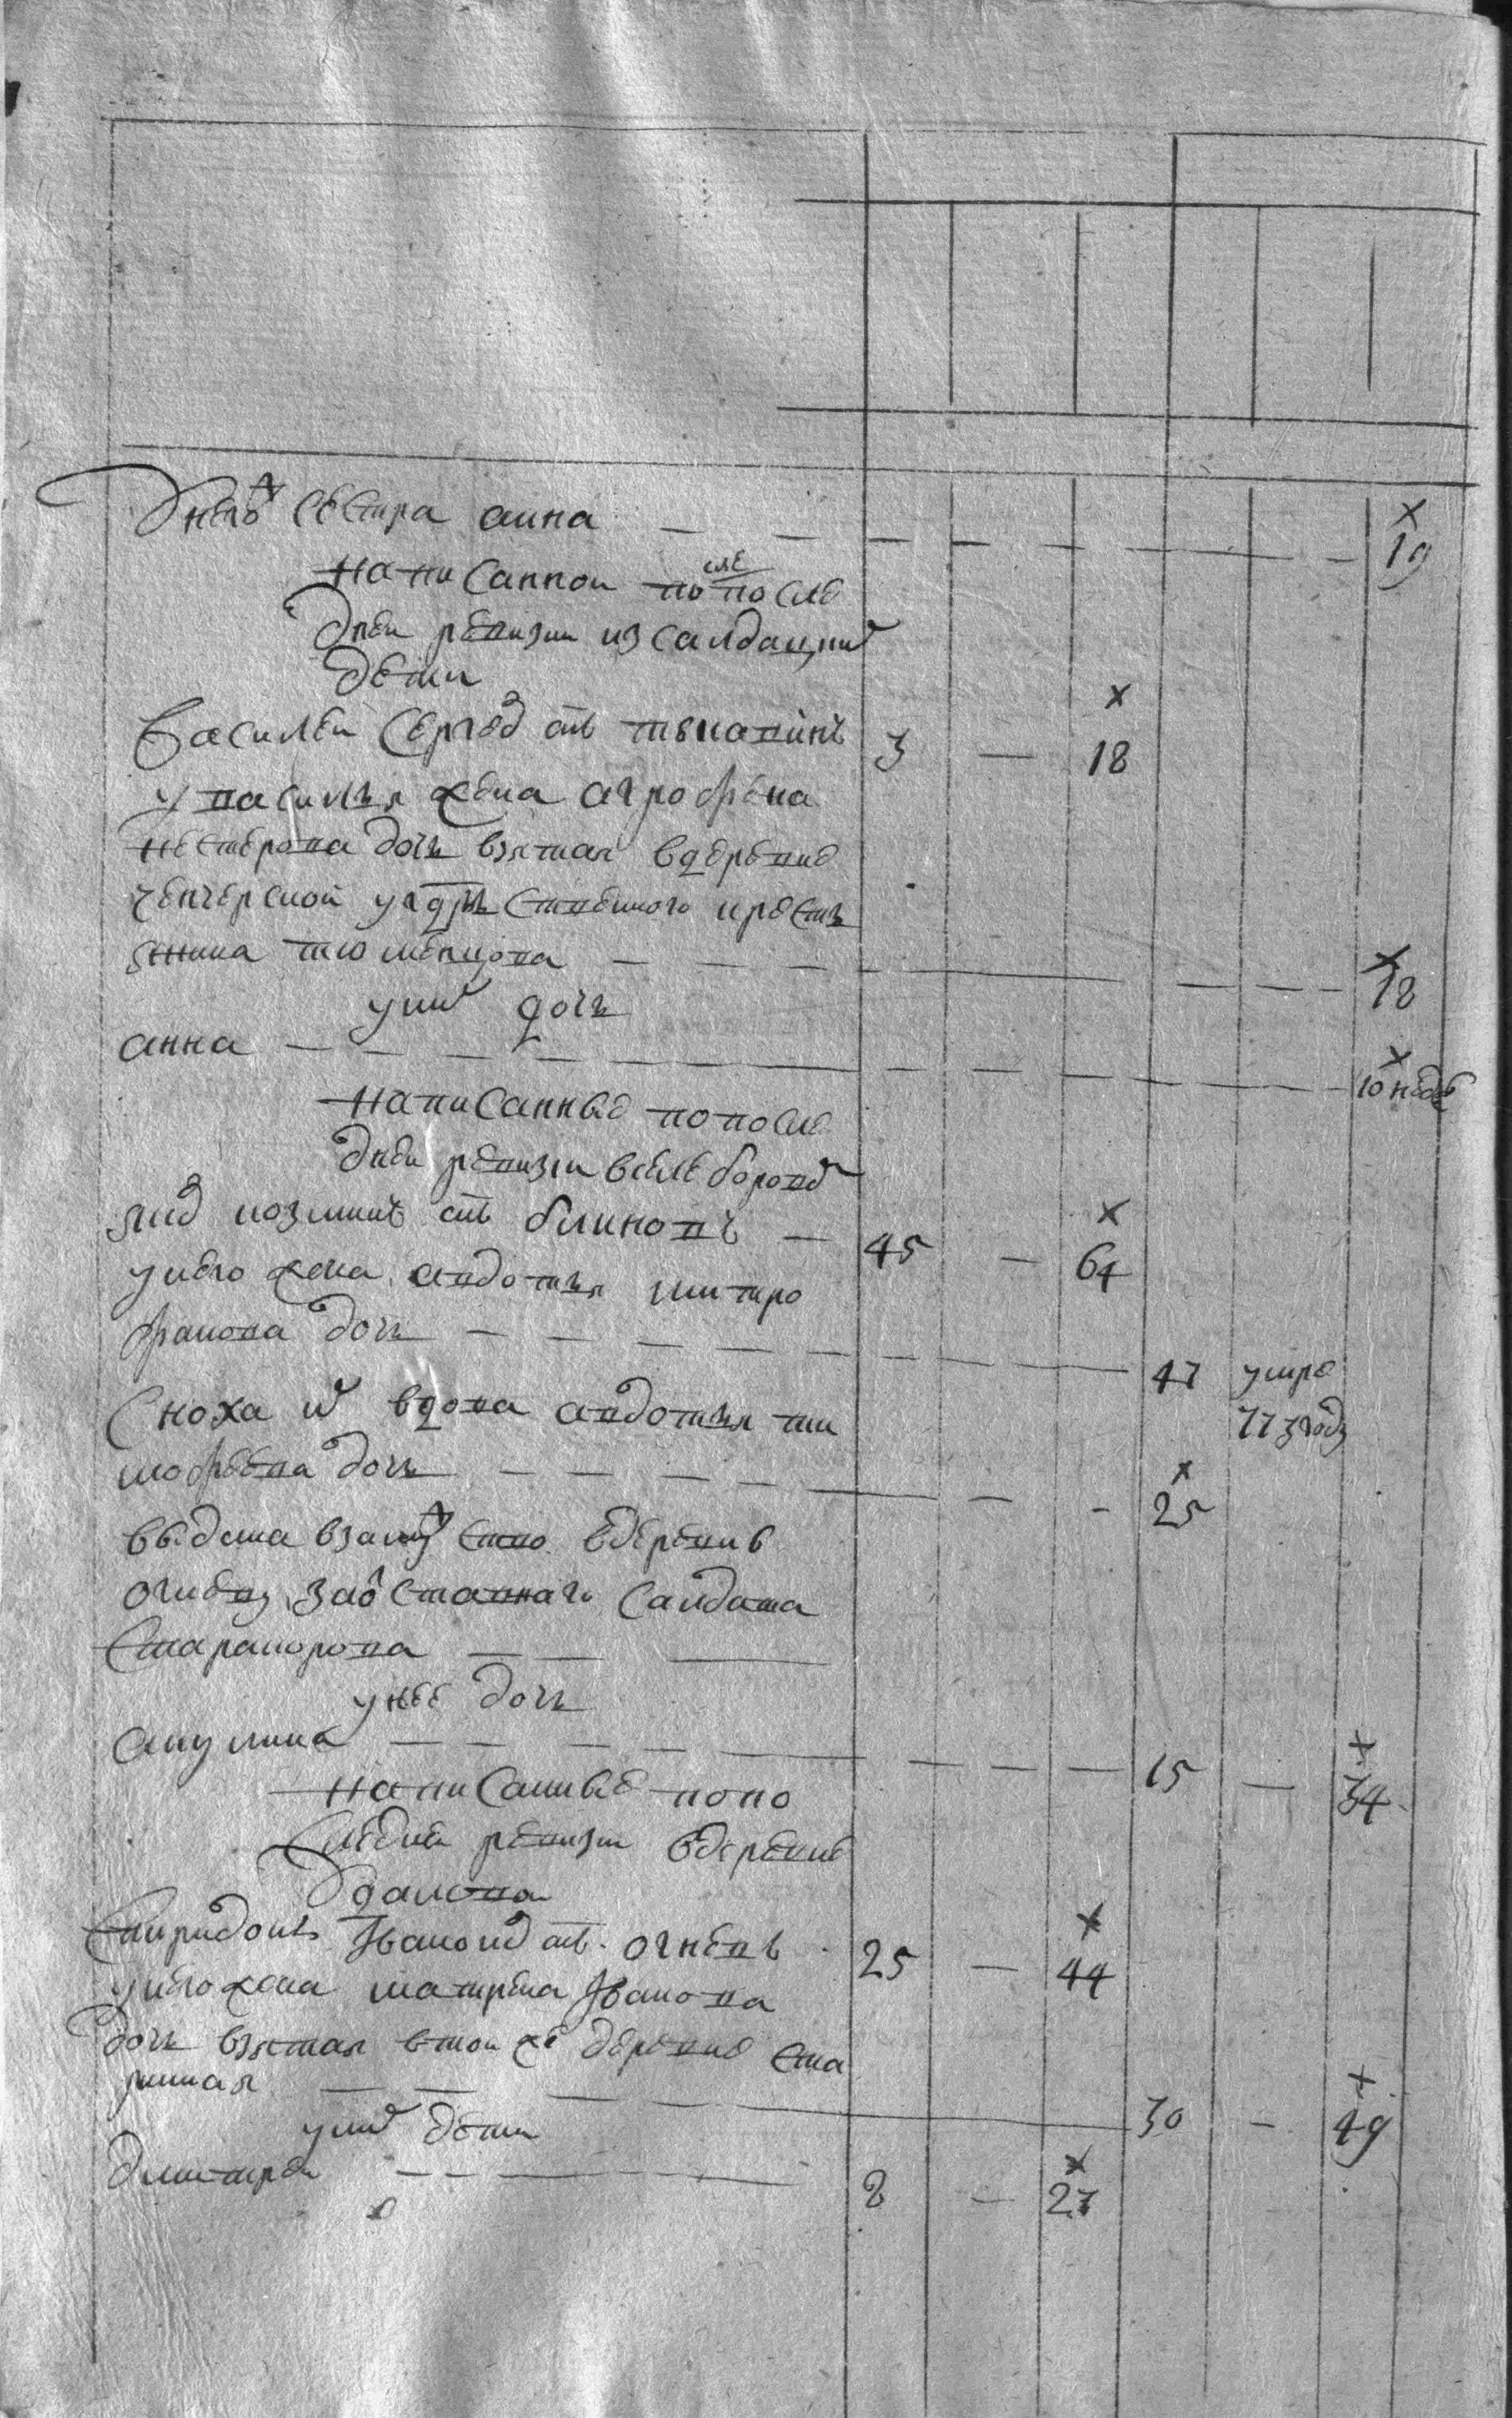 Днево сестра анна — — — — — — — 19
написанной по после
дней ревизии из салдацких
детей
василей сергеев снъ токаринъ 3 — 18
у василья жена агрофена
нестерова дочь взятая вдеревне
чепчерской у государственного кресть
янина тюменцова — — — — — — 18
у них дочь
анна — — — — — — — 10 недель
написанные по после
дней ревизии в селе боров
ское козминъ снъ блиновъ — 45 — 64
у него жена авдотья митро
фанова дочь — — — — — 47 умре
773 году
сноха их вдова авдотья ти
мофеева дочь — — — — — 25
выдана в замужство в деревню
очневу за отставнаго салдата
старикова — — —
у нее дочь
акулина — — — — — — 15 — 34
написанные по по
следней ревизии в деревне
спиридонъ Iвановъ снъ огневъ 25 — 44
у него жена матрена Iванова
дочь взятая в той же деревне ста
ринная — — — 30 — 49
у них дети
дмитрей — — — 8 — 27